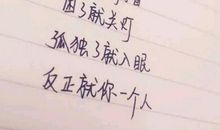 困了就关灯
孤独了就入眠
反正就你一个人